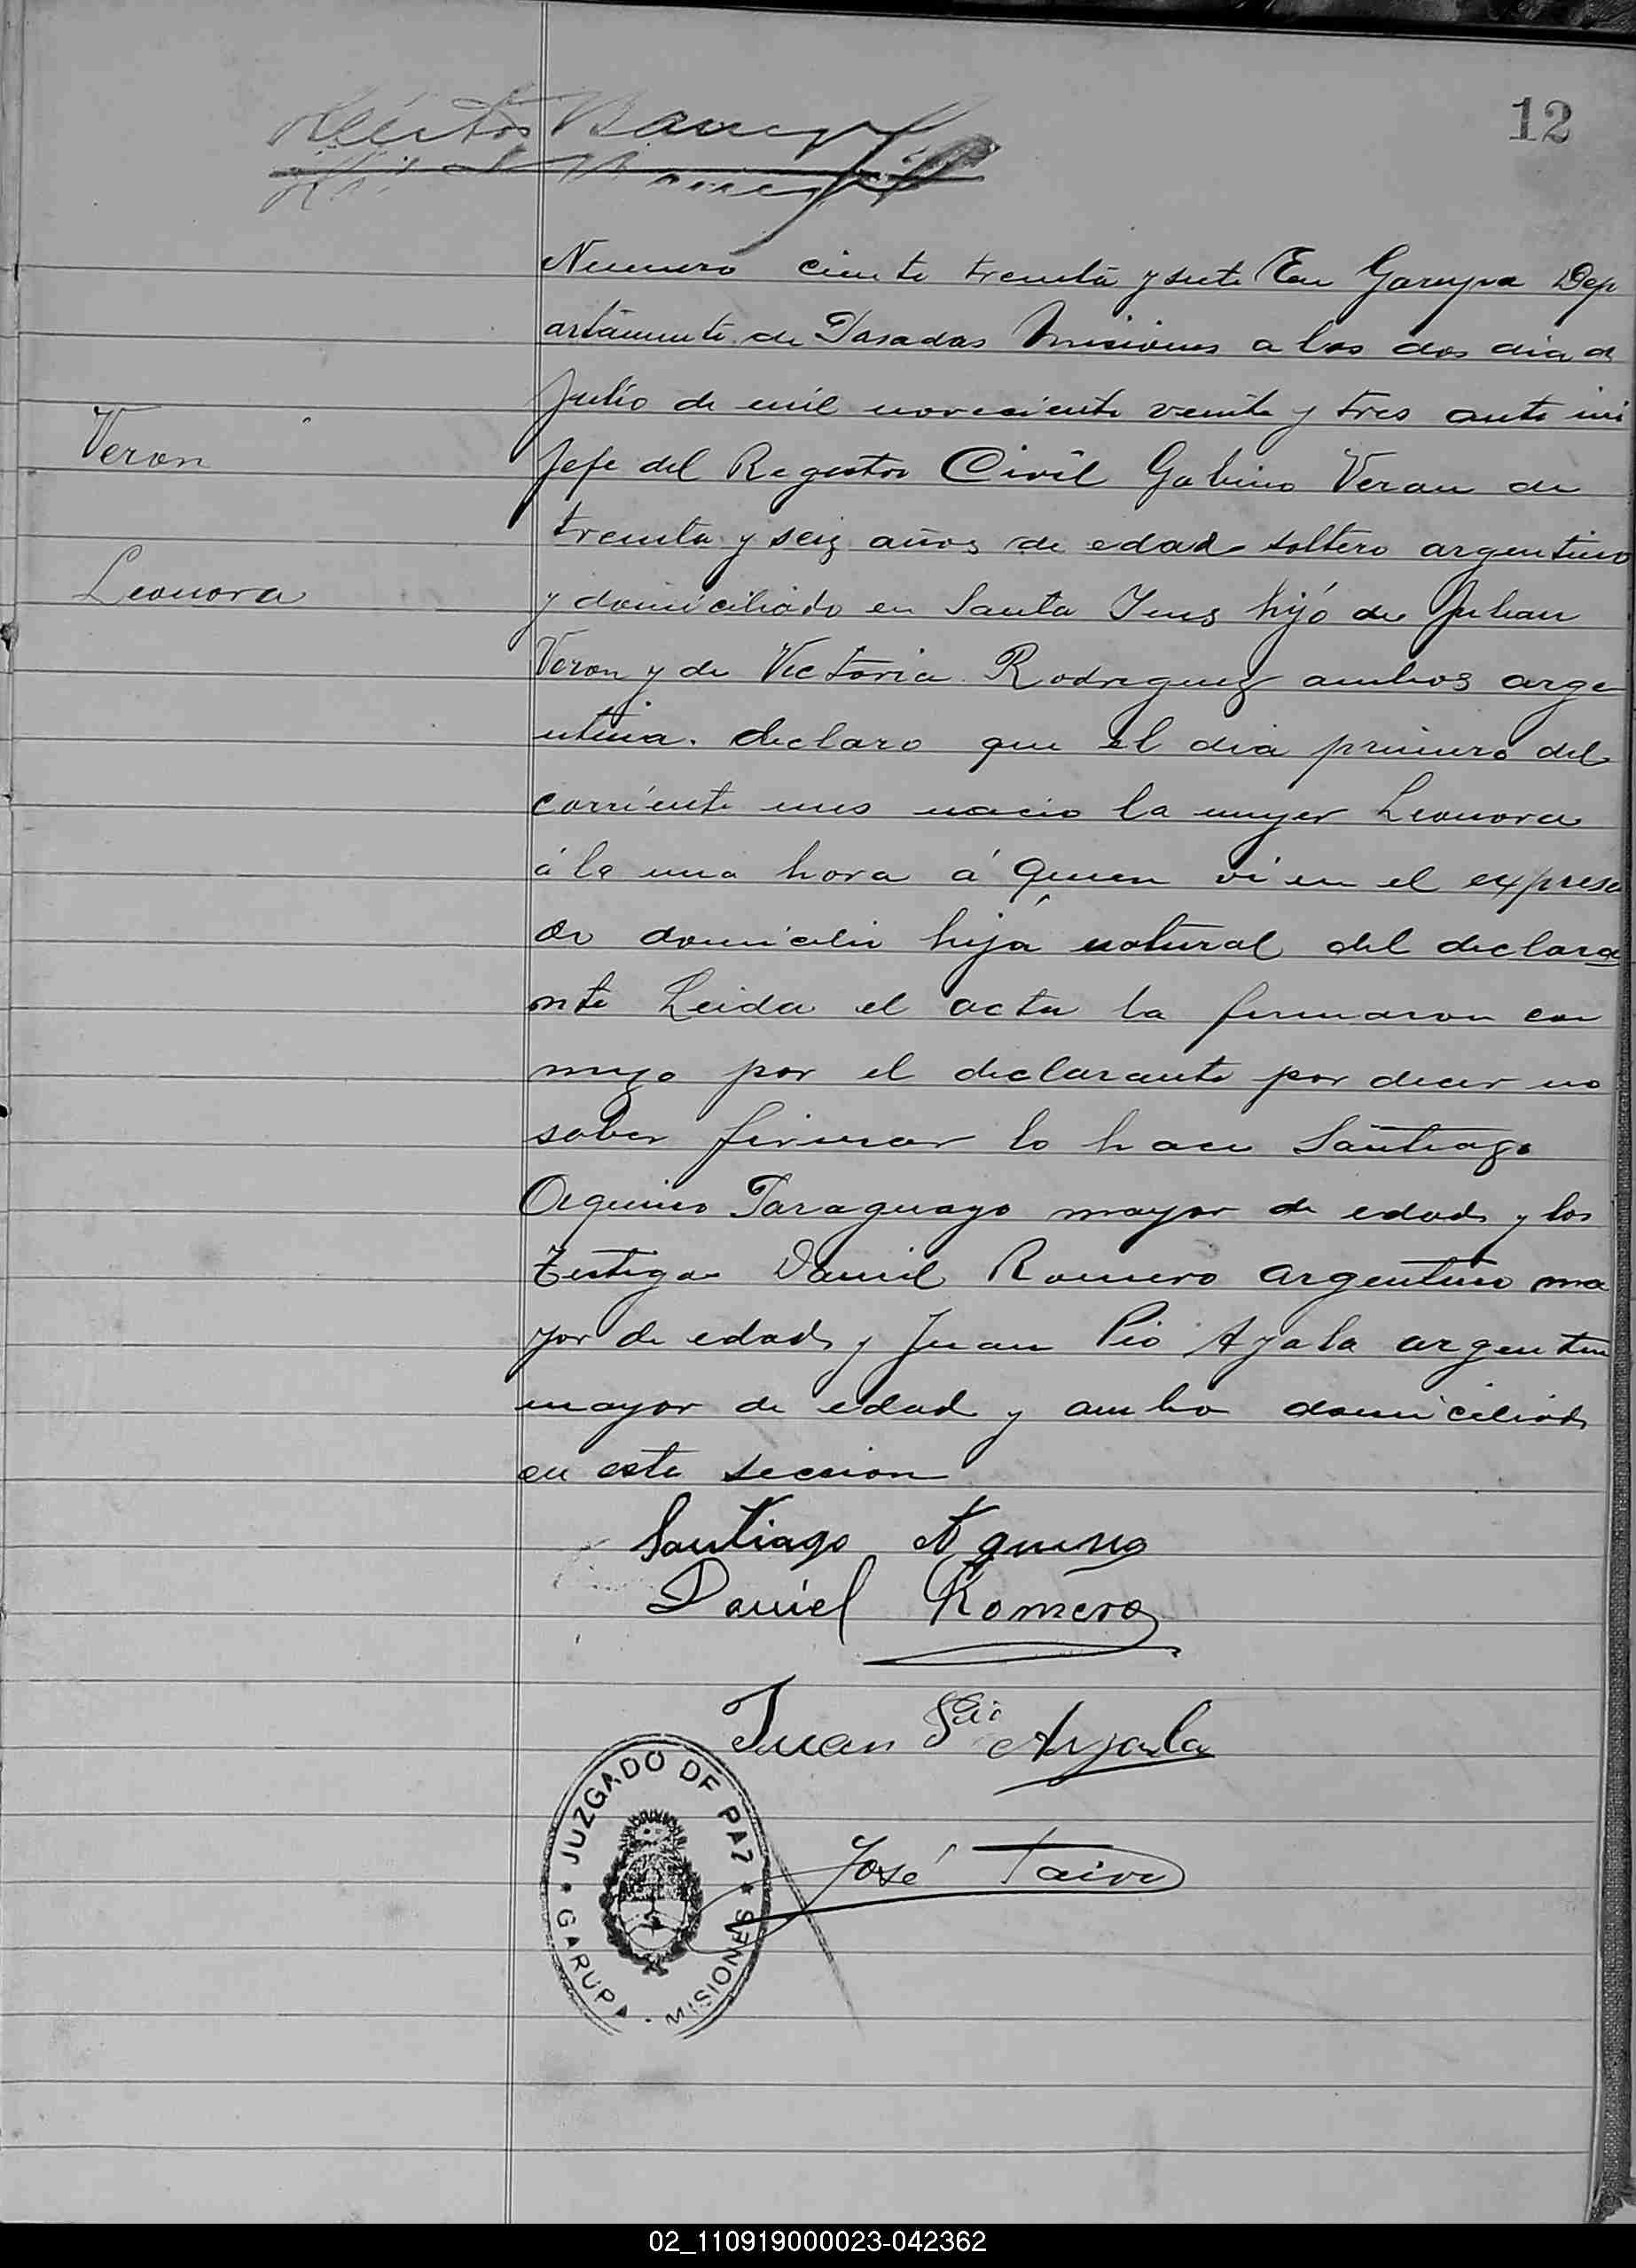 12
Numero ciento treinta y siete En Garupa Dep
artamento de Posadas Misiones a los dos dia de
Julio de mil novesiento veinte y tres ante mi
Veron
Jefe del Registro Civil Gabino Veron de
treinta y seis años de edad soltero argentino
Leonora
y domiciliado en Santa Ines hijó de Julian
Veron y de Victoria Rodriguez ambos arge
ntina. declaro que el dia primero del
corriente mes nacio la mujer Leonora
á la una hora á quien vi en el expresa
do domicilio hija natural del declara
nte Leida el acta la firmaron con
migo por el declarante por decir no
saber firmar lo hace Santiago
Paraguayo mayor de edad y los
testigos Daniel Romero argentino ma
yor de edad y Juan Pio Ayala argentino
mayor de edad y ambo domiciliado
en esta seccion
Santiago Aquino
Daniel Romero
Juan Pio Ayala
José
JUZGADO DE PAZ * GARUPA . MISIONES *
02_110919000023-042362